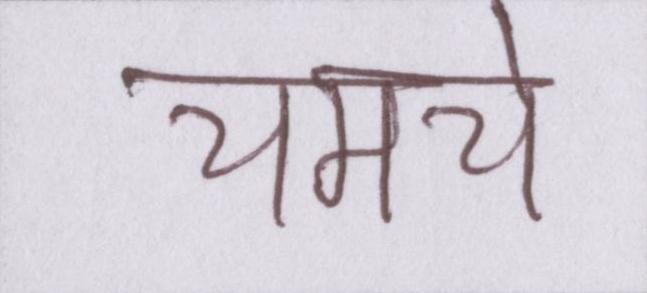 चमचे